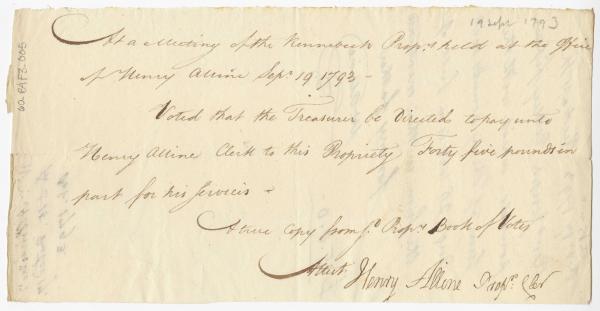 19 Sept 1793
At a Meeting of the Kennebeck Prop.s held at the Office
of Henry Alline Sep.r 19 1793 –
Voted that the Treasurer be Directed to pay unto
Henry Alline Clerk to this Propriety Forty five pounds in
part for his Services –
A true Copy from y.e Prop.s Book of Votes
Attest Henry Alline Prop.rs Cler